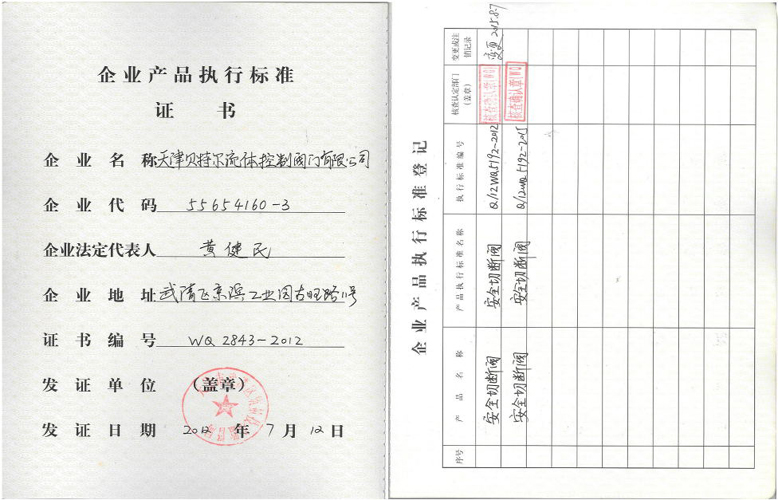 企业产品执行标准
证 书
企业名称 天津贝特尔流体控制阀门有限公司
企业代码 55654160-3
企业法定代表人 黄健民
企业地址 武清区京滨工业园古旺路11号
证书编号 WQ 2843-2012
发证单位 (盖章)
发证日期 2012 年 7 月 12 日
企业产品执行标准登记
序号 产品名称 产品执行标准名称 执行标准编号 核查认定部门(盖章) 变更或注销记录
安全切断阀 安全切断阀 Q/12WQ5192-2012 变更 2015.8.7
安全切断阀 安全切断阀 Q/12WQ5192-2015 核查确认章(WQ)